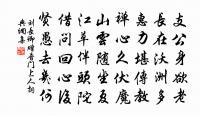 支公身欲老
長在沃洲多
惠力堪傳教
禪心久伏魔
山雲隨坐夏
江草伴頭陀
借問回心後
賢愚去幾何
劉長卿贈普門上人詞